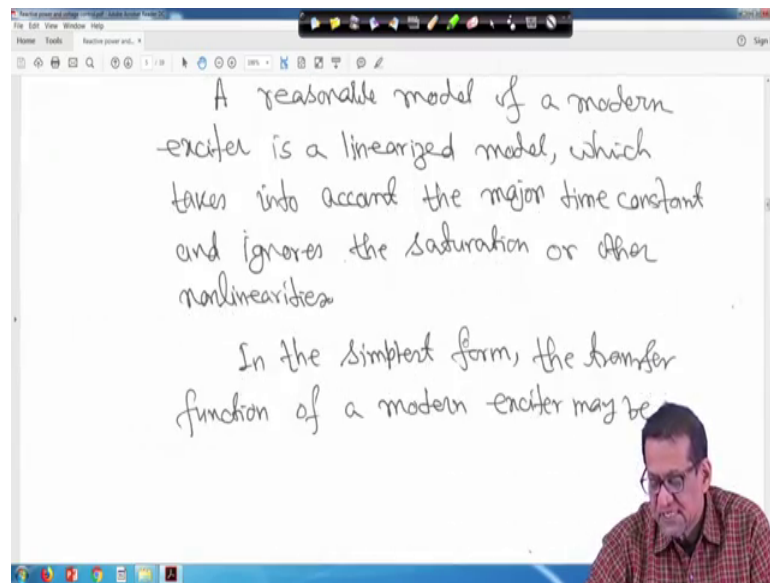 Reactive power and voltage control.pdf - Adobe Acrobat Reader DC
File Edit View Window Help
Home Tools Reactive power and... ×
Sign
A reasonable model of a modern
exciter is a linearized model, which
takes into account the major time constant
and ignores the saturation or other
nonlinearities.
In the simplest form, the transfer
function of a modern exciter may be